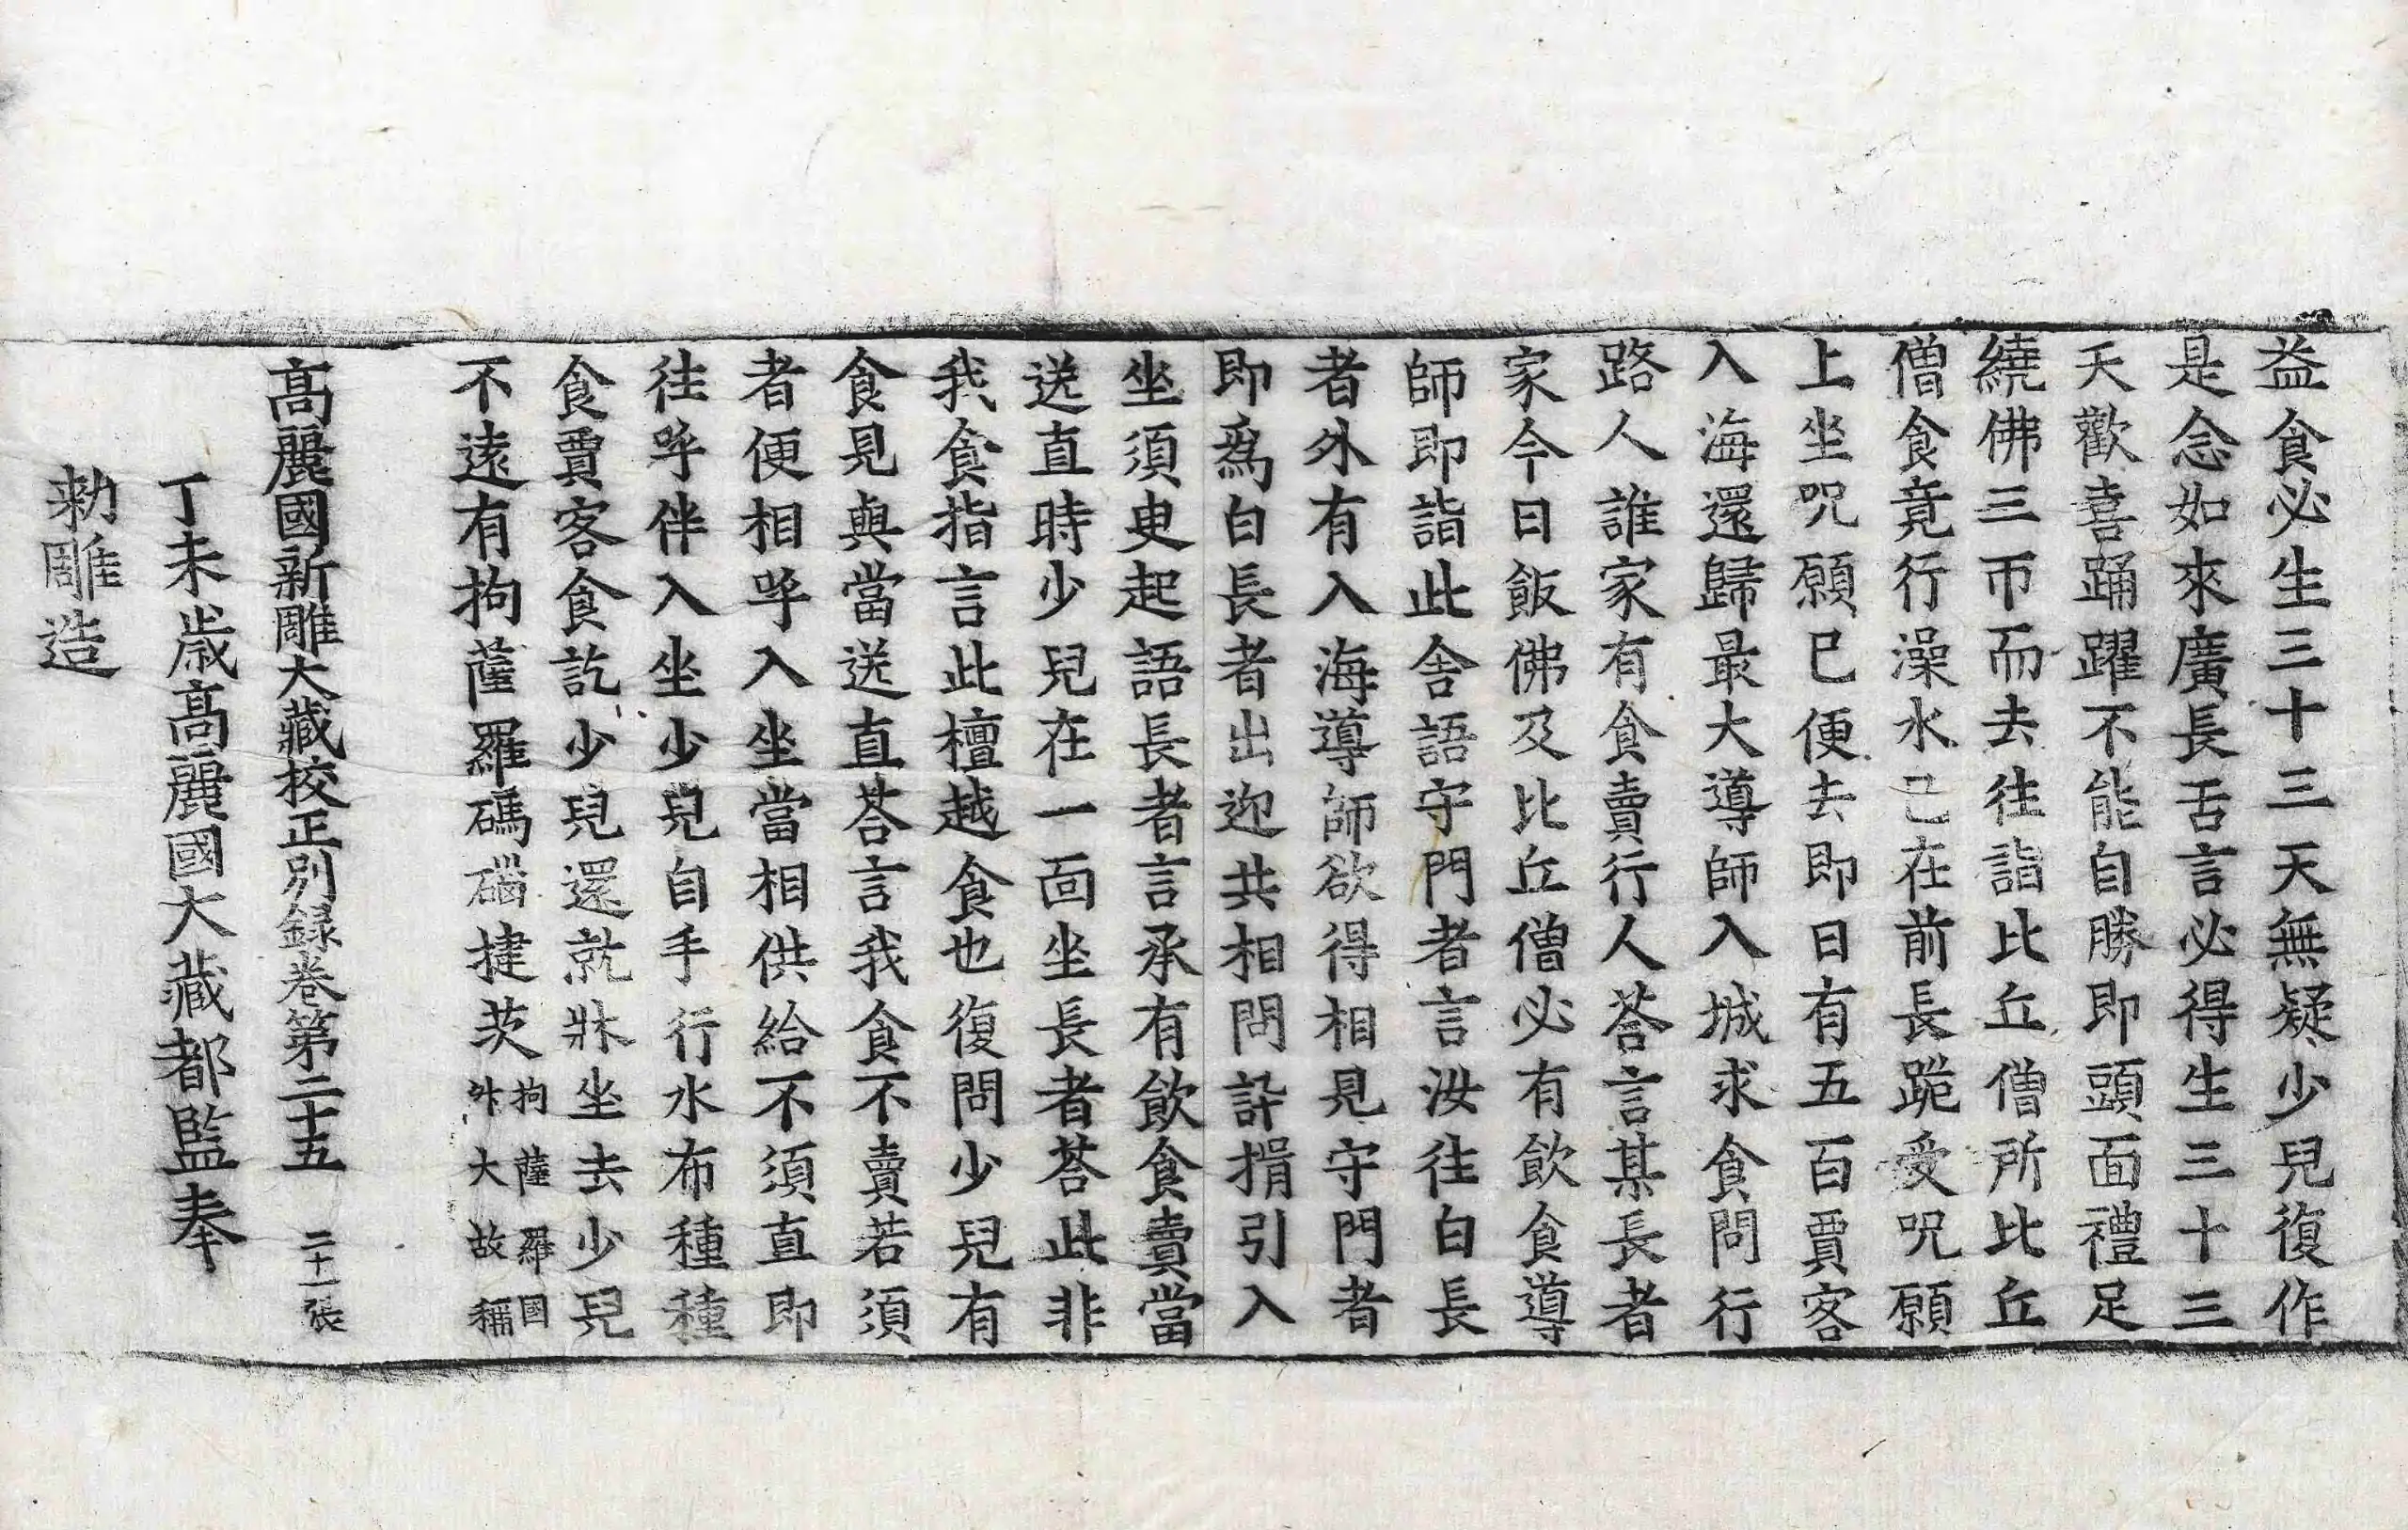 益食必生三十三天無疑少兒復作
是念如來廣長舌言必得生三十三
天歡喜踊躍不能自勝即頭面禮足
繞佛三帀而去往詣比丘僧所比丘
僧食竟行澡水已在前長跪受呪願
上坐呪願已便去即日有五百賈客
入海還歸最大導師入城求食問行
路人誰家有食賣行人荅言某長者
家今日飯佛及比丘僧必有飲食導
師即詣此舍語守門者言汝往白長
者外有入海導師欲得相見守門者
即爲白長者出迎共相問訊揖引入
坐須臾起語長者言承有飲食賣當
送直時少兒在一面坐長者荅此非
我食指言此檀越食也復問少兒有
食見與當送直荅言我食不賣若須
者便相呼入坐當相供給不須直即
往呼伴入坐少兒自手行水布種種
食賈客食訖少兒還就牀坐去少兒
不遠有拘薩羅碼碯揵茨拘薩羅國
舛大故稱
高麗國新雕大藏校正別録卷第二十五 二十一張
丁未歲高麗國大藏都監奉
勑雕造